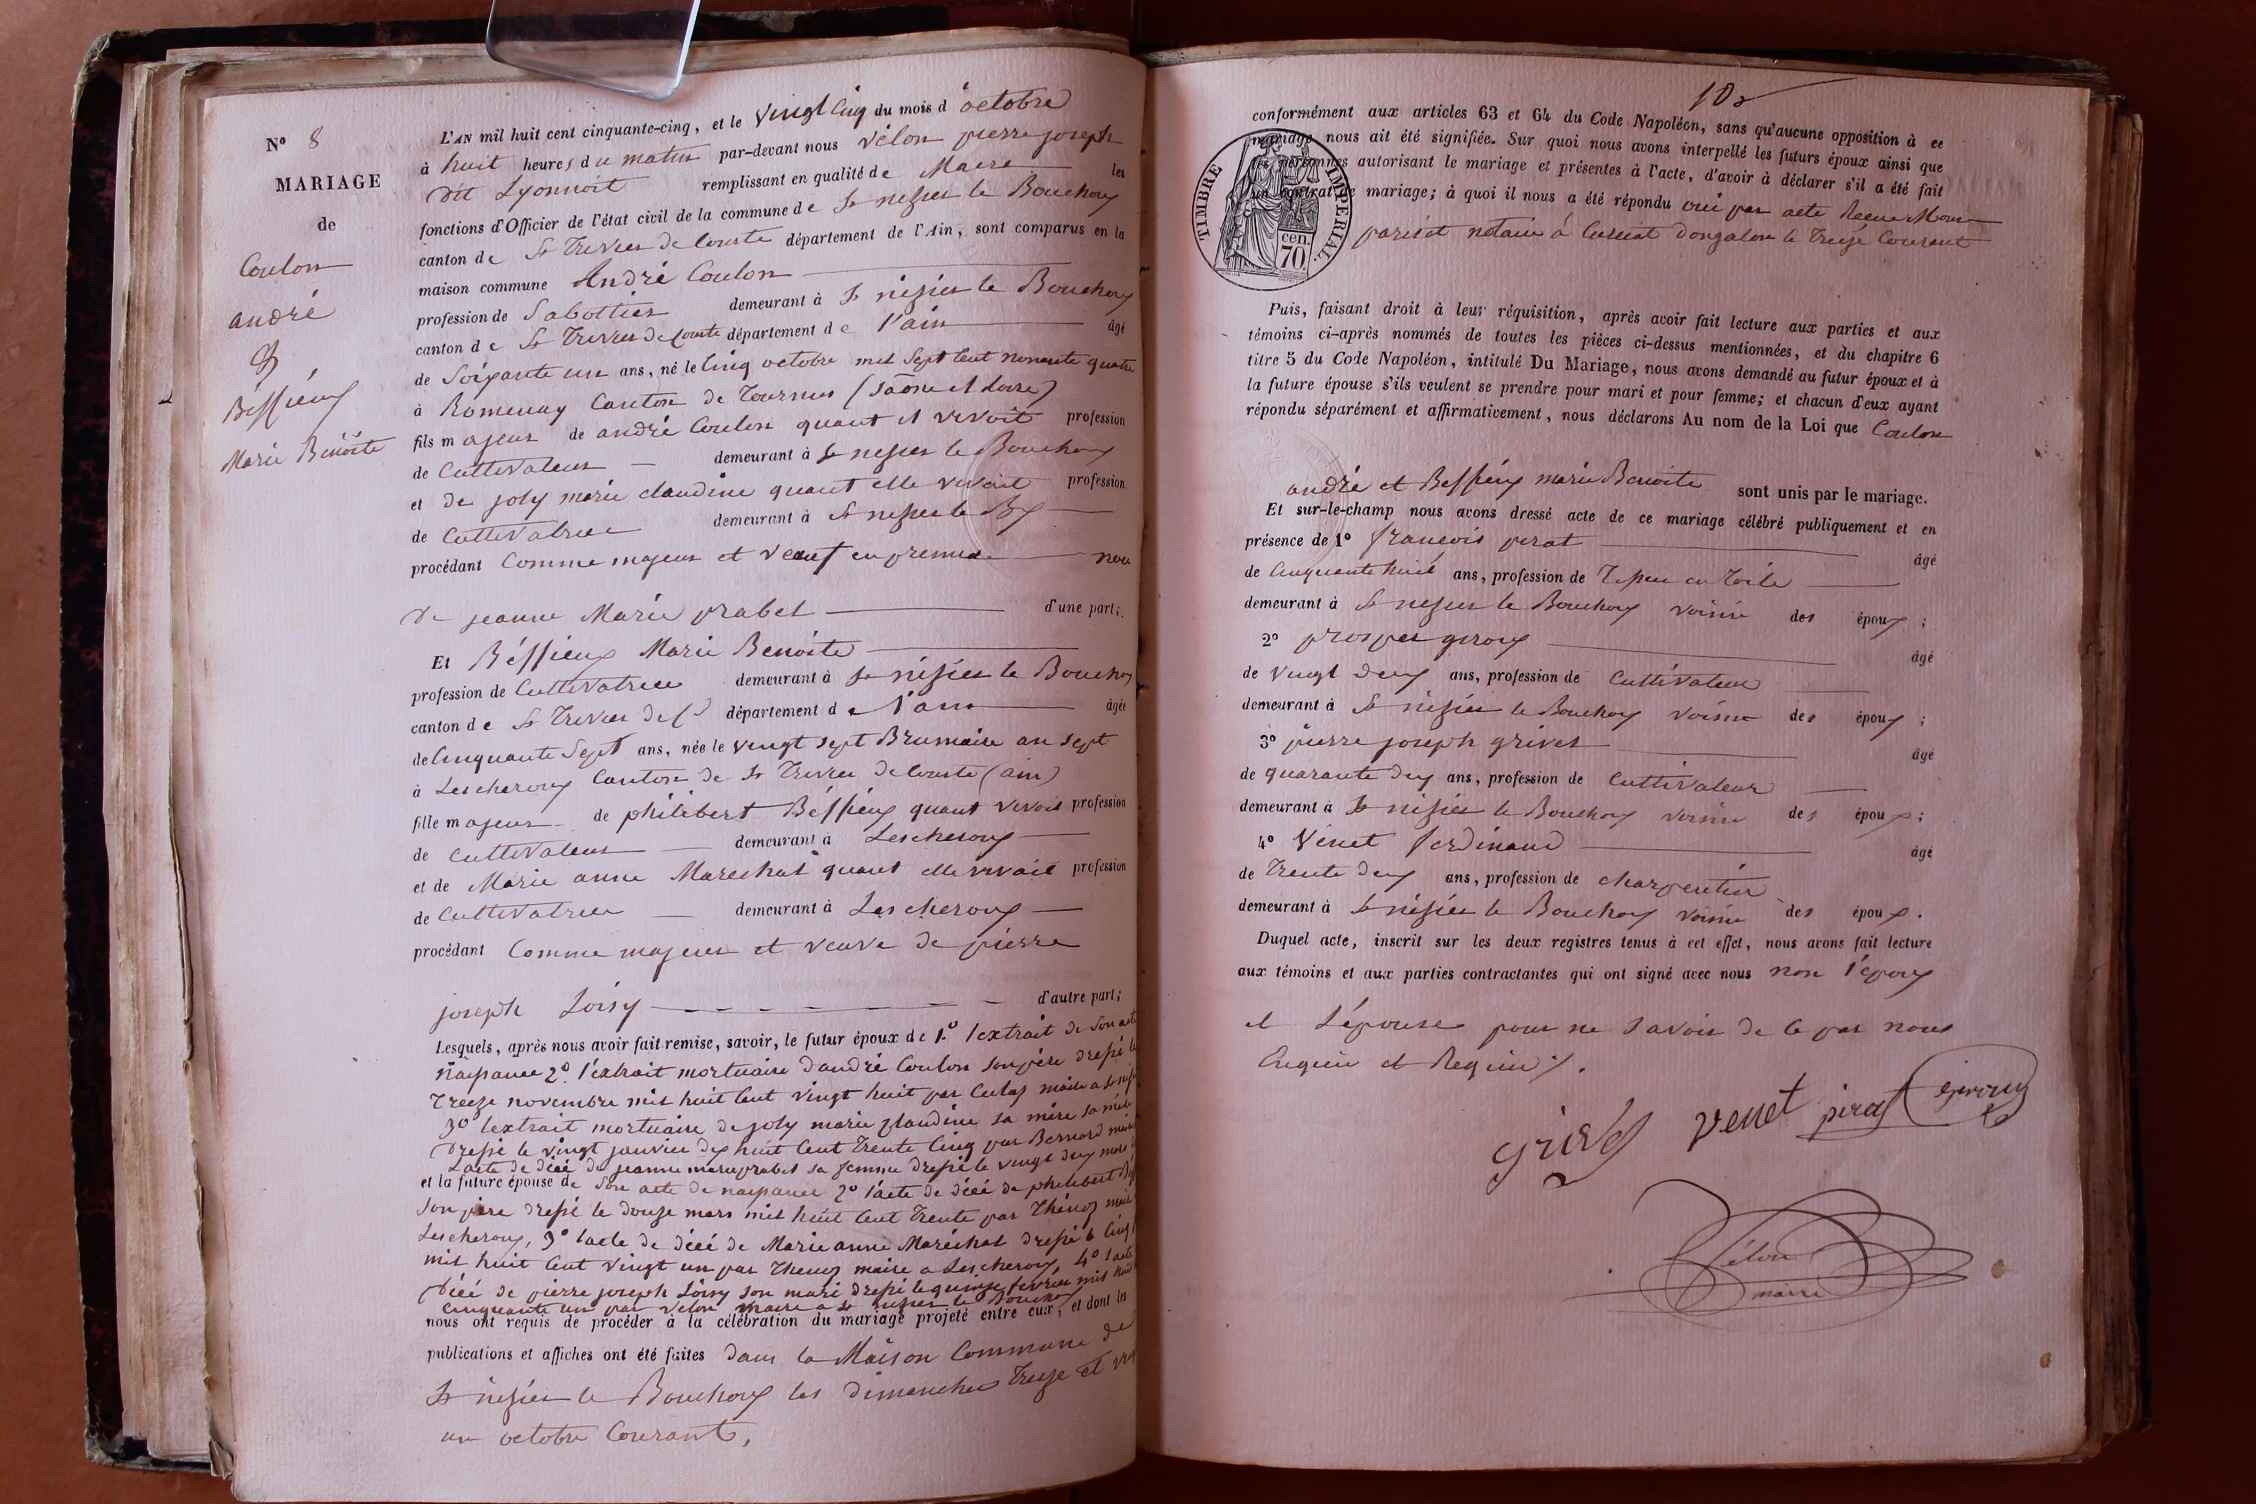 N° 8
MARIAGE
de
Coulon
andré
&
Béssieux
Marie Benoite
L'AN mil huit cent cinquante-cinq, et le vingt cinq du mois d'octobre
à huit heures du matin par-devant nous vélon pierre joseph
dit Lyonnoit remplissant en qualité de Maire les
fonctions d'Officier de l'état civil de la commune de St nizier le Bouchoux
canton de St Trivier de Courte département de l'Ain, sont comparus en la
maison commune André Coulon
profession de Sabottier demeurant à St nizier le Bouchoux
canton de St Trivier de Courte département de l'ain âgé
de Soixante un ans, né le Cinq octobre mil Sept Cent nonante quatre
à Romenay Canton de Tournus (Saône et Loire)
fils majeur de andré Coulon quant il vivoit profession
de Cultivateur demeurant à St nizier le Bouchoux
et de joly marie claudine quant elle vivait profession
de Cultivatrice demeurant à St nizier le Bx
procédant Comme majeur et veauf en premier
de jeanne Marie prabel d'une part;
Et Béssieux Marie Benoite
profession de Cultivatrice demeurant à St nizier le Bouchoux
canton de St Trivier de C département de l'ain âgée
de Cinquante Sept ans, née le vingt sept Brumaire an sept
à Lescheroux Canton de St Trivier de Courte (ain)
fille majeur de philibert Béssieux quant vivoit profession
de Cultivateur demeurant à Lescheroux
et de Marie anne Marechal quant elle vivait profession
de Cultivatrice demeurant à Lescheroux
procédant Comme majeur et veuve de pierre
joseph Loisy d'autre part;
Lesquels, après nous avoir fait remise, savoir, le futur époux de 1° l'extrait de Son acte
Naissance 2° l'extrait mortuaire d'andré Coulon Son père dressé le
treize novembre mil huit Cent vingt huit par maire a St
3° lextrait mortuaire de joly marie claudine sa mère
Dressé le vingt janvier dix huit Cent Trente Cinq par Bernard maire
Lacte de déié de jeanne marie prabel sa femme dressé le vingt deux mars
et la future épouse de Son acte de naissance 2° l'acte de déié de philibert
Son père dressé le douze mars mil huit Cent Trente par Thénoz maire
Lescheroux, 3° lacte de déié de Marie anne Maréchal dressé le Cinq
mil huit Cent vingt un par Thenoz maire a Lescheroux, 4° l'acte
Déié de pierre joseph Loisy Son mari dressé le quinze février mil huit
Cinquante un par vélon Maire a St nizier le Bouchoux
nous ont requis de procéder à la célébration du mariage projeté entre eux, et dont les
publications et affiches ont été faites dans la Maison Commune de
St nizier le Bouchoux les dimanches Treize et vingt
un octobre Courant,
102
conformément aux articles 63 et 64 du Code Napoléon, sans qu'aucune opposition à ce
mariage nous ait été signifiée. Sur quoi nous avons interpellé les futurs époux ainsi que
les personnes autorisant le mariage et présentes à l'acte, d'avoir à déclarer s'il a été fait
un contrat de mariage; à quoi il nous a été répondu oui par acte Recu
parisot notaire á Curciat dongalon le Treize Courant
TIMBRE IMPÉRIAL.
70 cen.
Puis, faisant droit à leur réquisition, après avoir fait lecture aux parties et aux
témoins ci-après nommés de toutes les pièces ci-dessus mentionnées, et du chapitre 6
titre 5 du Code Napoléon, intitulé Du Mariage, nous avons demandé au futur époux et à
la future épouse s'ils veulent se prendre pour mari et pour femme; et chacun d'eux ayant
répondu séparément et affirmativement, nous déclarons Au nom de la Loi que Coulon
andré et Bessieux marie Benoite sont unis par le mariage.
Et sur-le-champ nous avons dressé acte de ce mariage célébré publiquement et en
présence de 1° françois perat âgé
de Cinquante huit ans, profession de Tisseur en Toile
demeurant à St nizier le Bouchoux voisin des époux;
2° prosper giroux âgé
de vingt deux ans, profession de Cultivateur
demeurant à St nizier le Bouchoux voisin des époux;
3° pierre joseph grivet âgé
de quarante deux ans, profession de Cultivateur
demeurant à St nizier le Bouchoux voisin des époux;
4° Venet ferdinand âgé
de Trente deux ans, profession de charpentier
demeurant à St nizier le Bouchoux voisin des époux.
Duquel acte, inscrit sur les deux registres tenus à cet effet, nous avons fait lecture
aux témoins et aux parties contractantes qui ont signé avec nous non l'époux
et l'épouse pour ne savoir de ce par nous
Enquis et Requis./.
grivet venet pirat giroux
vélon
maire